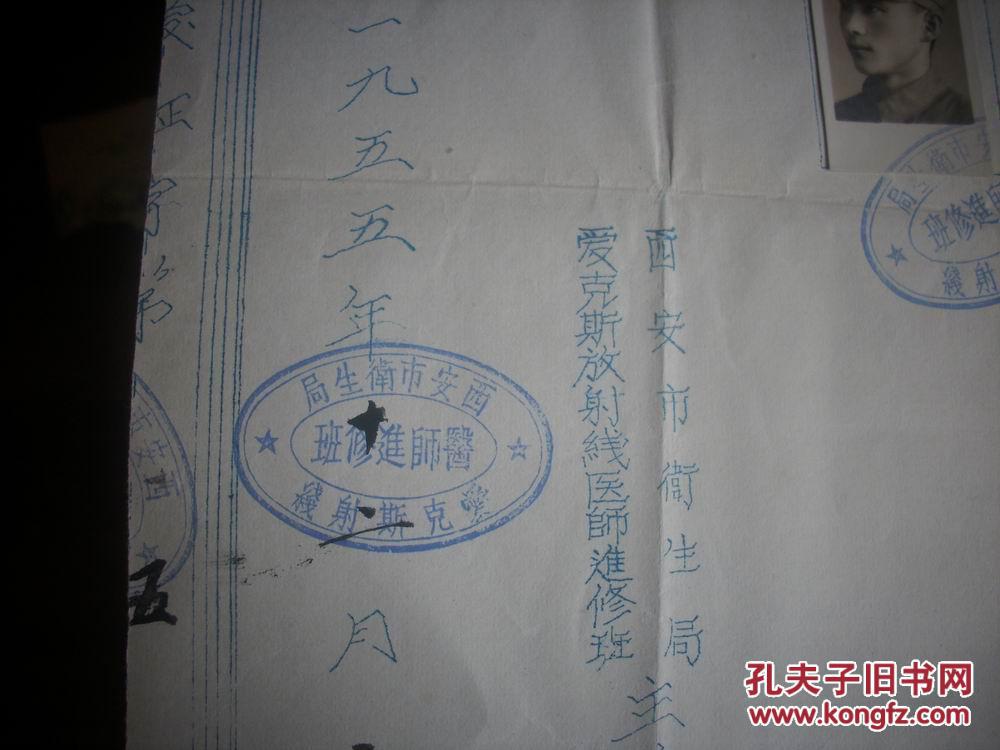 西安市衛生局
爱克斯放射綫医師進修班
主
一九五五年十一月
字第
五
西安市衛生局
醫師進修班
愛克斯射綫
安市衛生局
進修班
射綫
西安市
孔夫子旧书网
www.kongfz.com